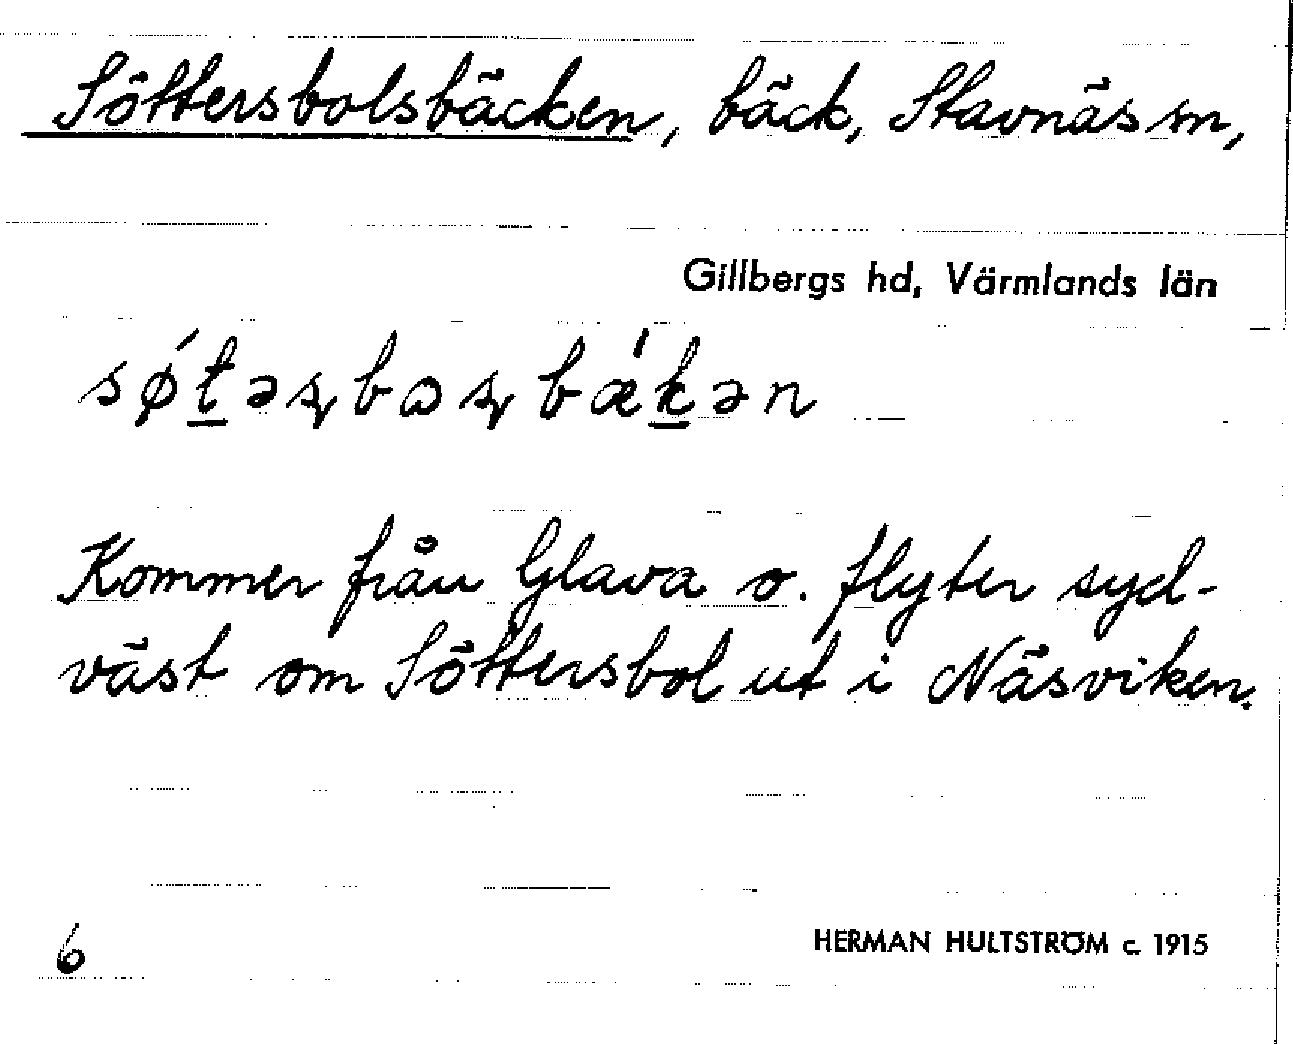 Söttersbolsbäcken, bäck, Stavnäs sn,
Gillbergs hd, Värmlands län
sǿt̲əʂbɷʂbǽk̲ən
Kommer från Glava o. flyter syd-
väst om Söttersbol ut i Näsviken.
6
HERMAN HULTSTRÖM c. 1915